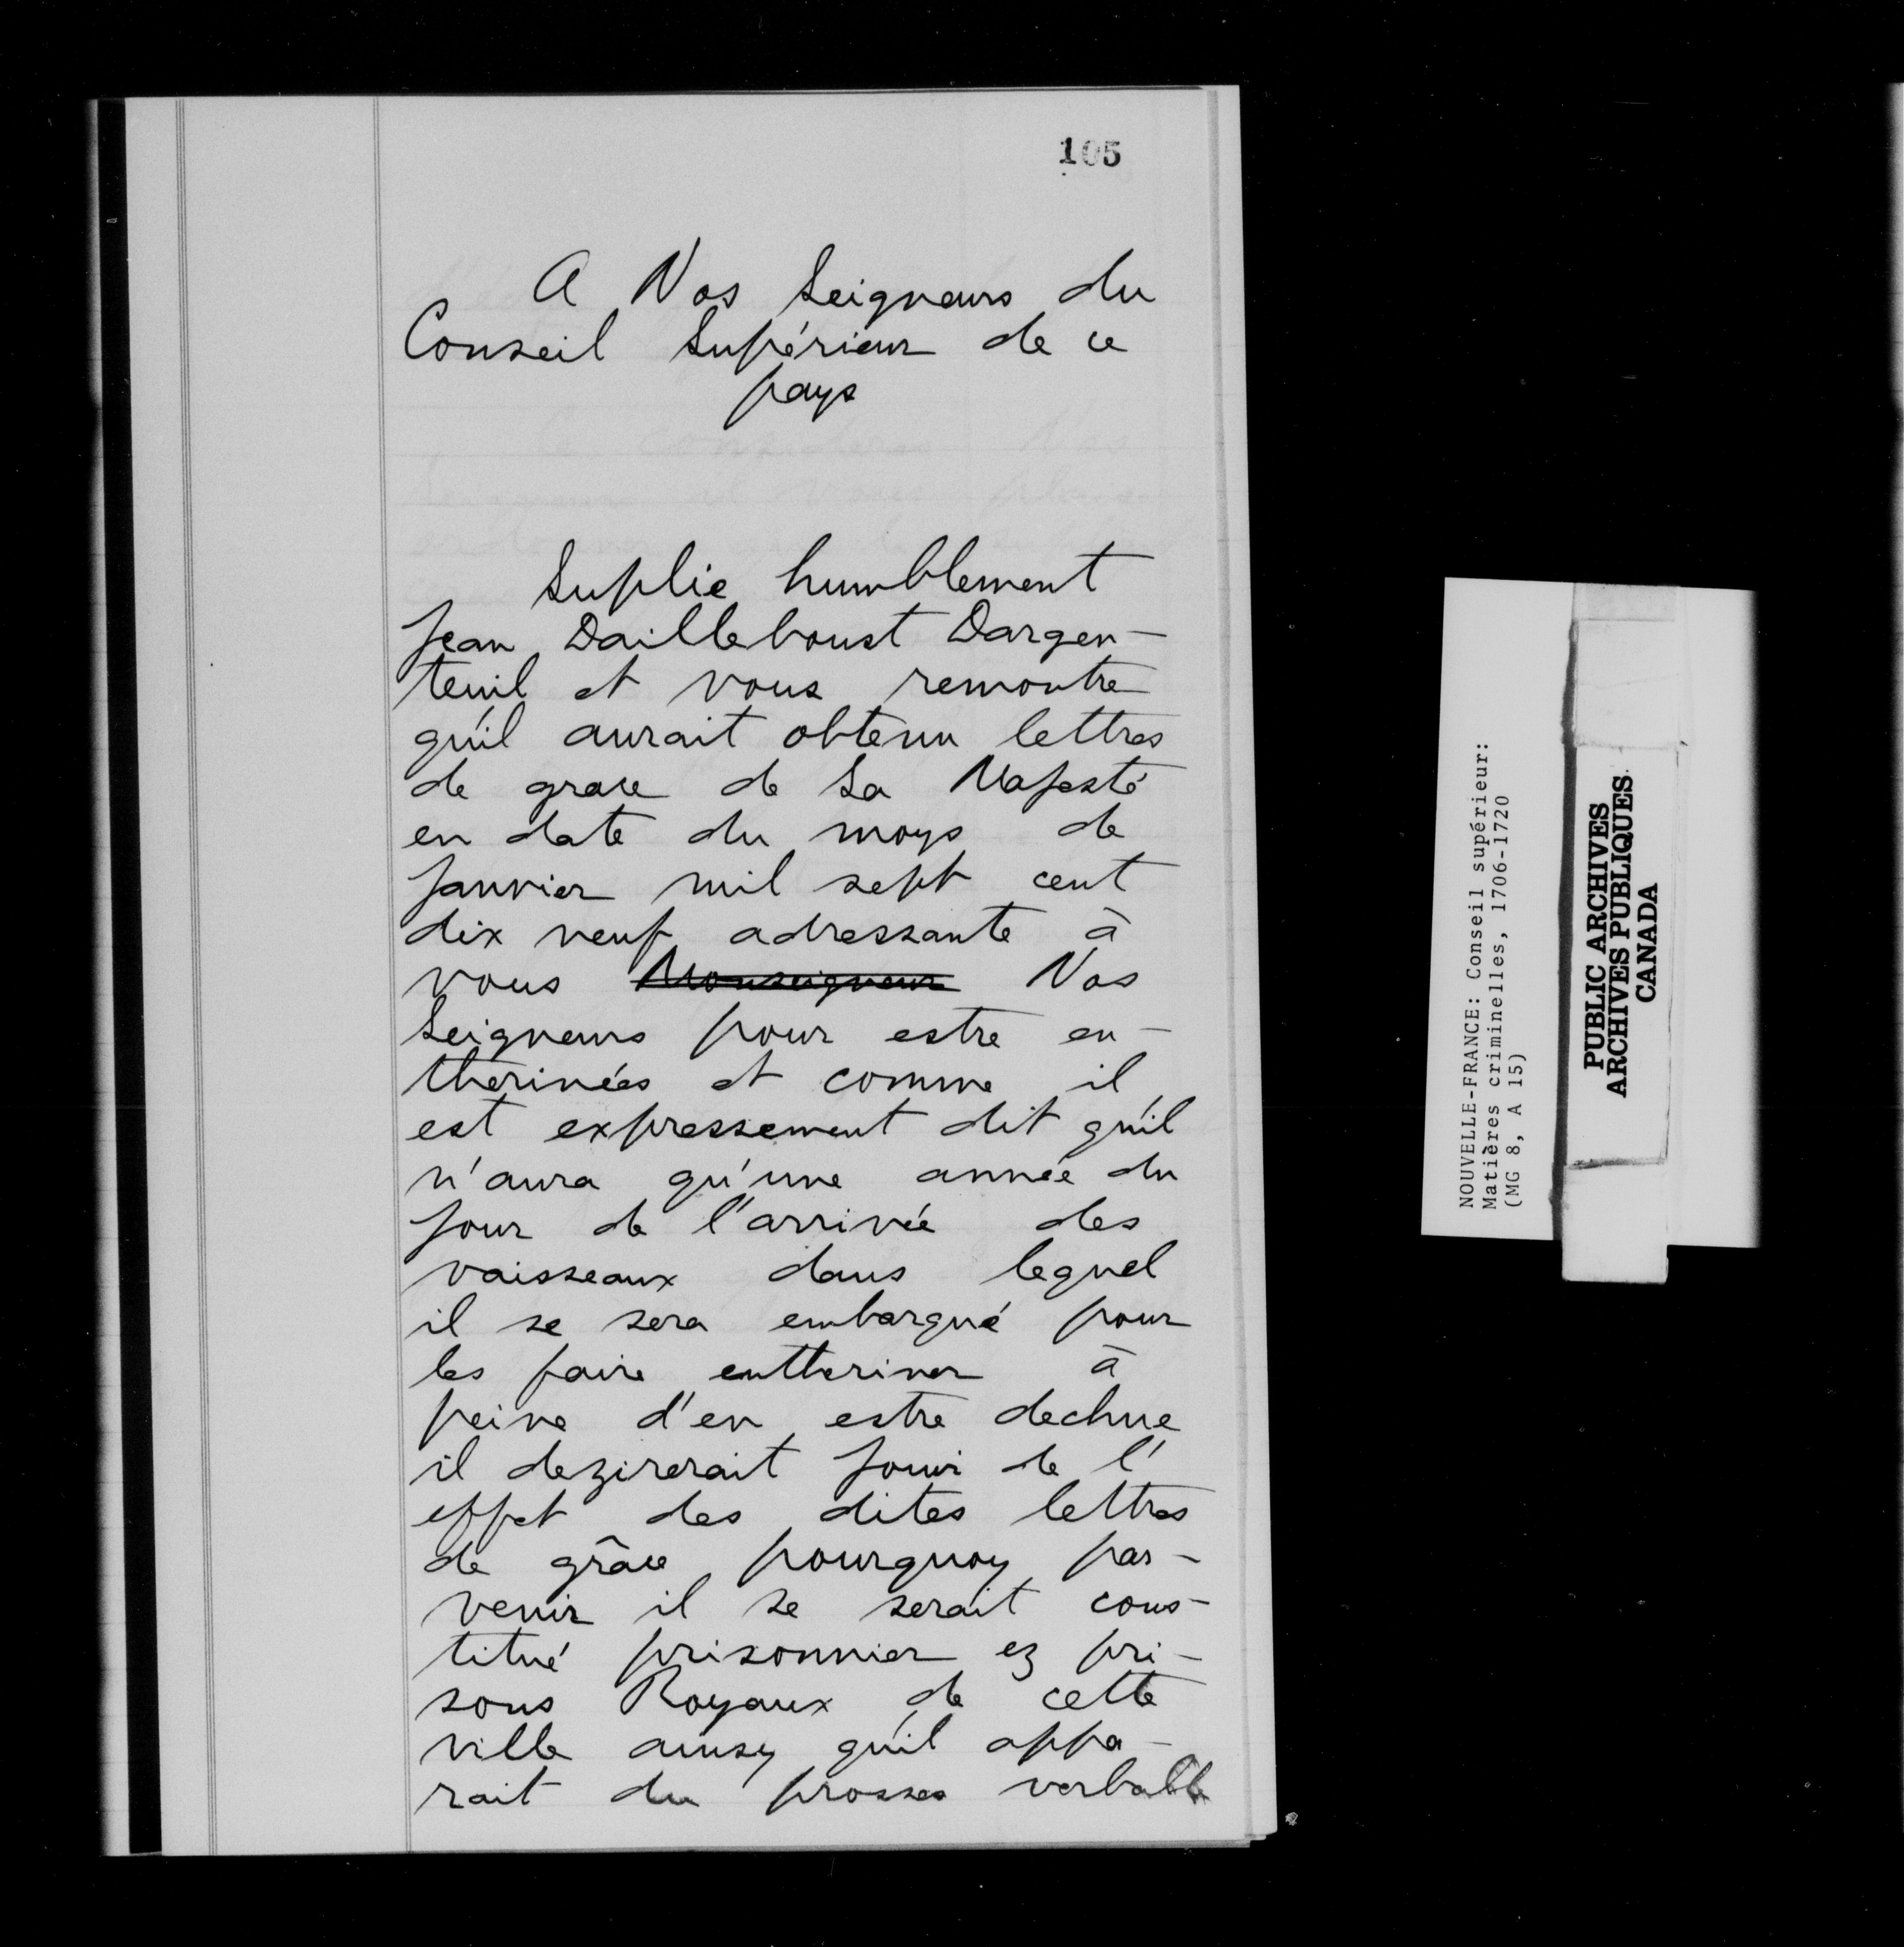 105
A Nos Seigneurs du
Conseil Supérieur de ce
pays
Suplie humblement
Jean Dailleboust Dargen-
teuil et vous remontre
qu'il aurait obtenu lettres
de grace de Sa Majesté
en date du moys de
Janvier mil sept cent
dix neuf adressante à
vous Monseigneur Nos
Seigneurs pour estre en-
therinées et comme il
est expressement dit qu'il
n'aura qu'une année du
jour de l'arrivée des
vaisseaux dans lequel
il se sera embarqué pour
les faire enttheriner à
peine d'en estre dechue
il dezirerait jouir de l'
effet des dites lettres
de grâce pourquoy par-
venir il se serait cons-
titué prisonnier ez pri-
sons Royaux de cette
ville ainsy qu'il appa-
rait du prosses verballe
NOUVELLE-FRANCE: Conseil supérieur:
Matières criminelles, 1706-1720
(MG 8, A 15)
PUBLIC ARCHIVES
ARCHIVES PUBLIQUES
CANADA